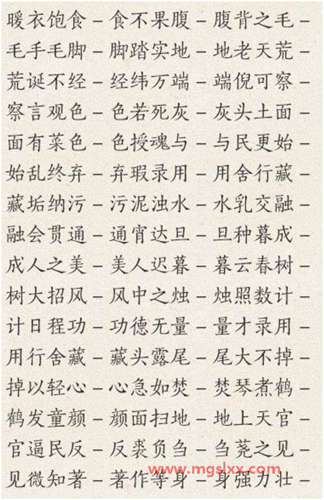 暖衣饱食 – 食不果腹 – 腹背之毛 –
毛手毛脚 – 脚踏实地 – 地老天荒 –
荒诞不经 – 经纬万端 – 端倪可察 –
察言观色 – 色若死灰 – 灰头土面 –
面有菜色 – 色授魂与 – 与民更始 –
始乱终弃 – 弃瑕录用 – 用舍行藏 –
藏垢纳污 – 污泥浊水 – 水乳交融 –
融会贯通 – 通宵达旦 – 旦种暮成 –
成人之美 – 美人迟暮 – 暮云春树 –
树大招风 – 风中之烛 – 烛照数计 –
计日程功 – 功德无量 – 量才录用 –
用行舍藏 – 藏头露尾 – 尾大不掉 –
掉以轻心 – 心急如焚 – 焚琴煮鹤 –
鹤发童颜 – 颜面扫地 – 地上天官 –
官逼民反 – 反裘负刍 – 刍荛之见 –
见微知著 – 著作等身 – 身强力壮 –
www.mgslxx.com